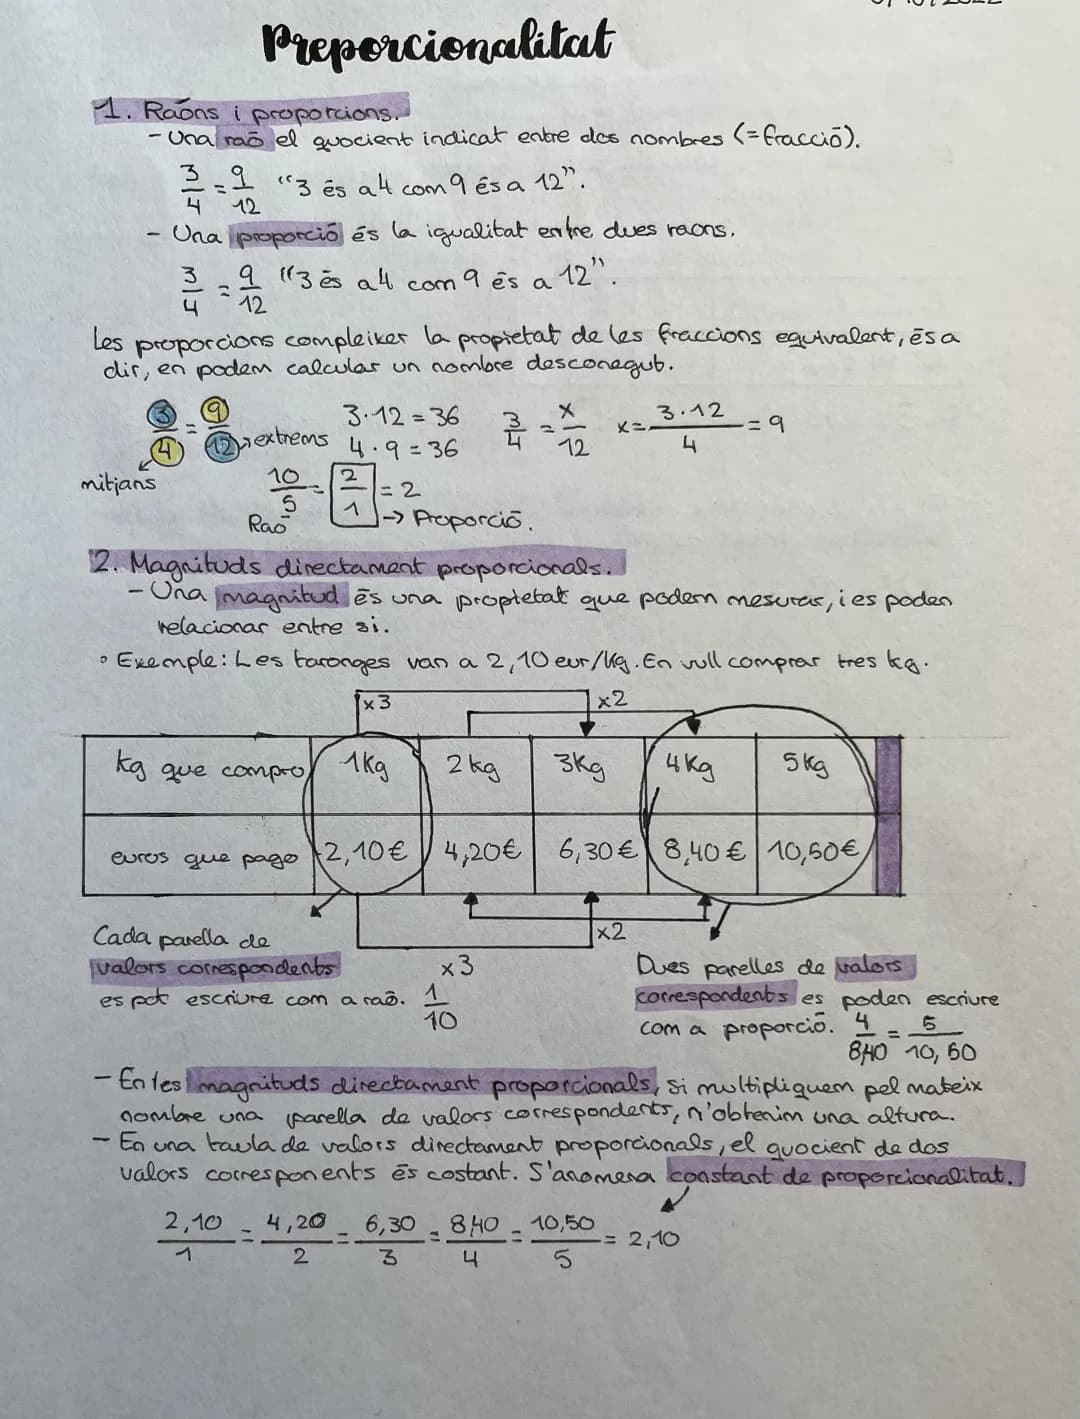 Preporcionalitat
1. Raons i proporcions.
- Una raó el quocient indicat entre dos nombres (=fracció).
3/4 = 9/12 “3 és a 4 com 9 és a 12”.
- Una proporció és la igualitat entre dues raons.
3/4 = 9/12 “3 és a 4 com 9 és a 12”.
Les proporcions compleixer la propietat de les fraccions equivalent, és a
dir, en podem calcular un nombre desconegut.
3/4 = 9/12 → extrems
mitjans
3·12 = 36
4·9 = 36
3/4 = x/12 x = 3·12/4 = 9
10/5 = 2/1 = 2
Raó → Proporció.
2. Magnituds directament proporcionals.
- Una magnitud és una propietat que podem mesurar, i es poden
relacionar entre si.
° Exemple: Les taronges van a 2,10 eur/kg. En vull comprar tres kg.
x3 x2
kg que compro 1kg 2kg 3kg 4kg 5kg
euros que pago 2,10€ 4,20€ 6,30€ 8,40€ 10,50€
x2
x3
Cada parella de
valors correspondents
es pot escriure com a raó. 1/10
Dues parelles de valors
correspondents es poden escriure
com a proporció. 4/8,40 = 5/10,50
- En les magnituds directament proporcionals, si multipliquem pel mateix
nombre una parella de valors correspondents, n'obtenim una altura.
- En una taula de valors directament proporcionals, el quocient de dos
valors corresponents és costant. S'anomena constant de proporcionalitat.
2,10/1 = 4,20/2 = 6,30/3 = 8,40/4 = 10,50/5 = 2,10